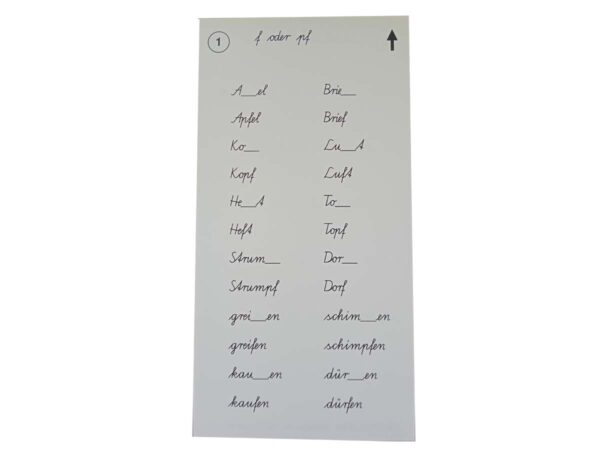 1 f oder pf
A__el Brie__
Apfel Brief
Ko__ Lu__t
Kopf Luft
He__t To__
Heft Topf
Strum__ Dor__
Strumpf Dorf
grei__en schim__en
greifen schimpfen
kau__en dür__en
kaufen dürfen